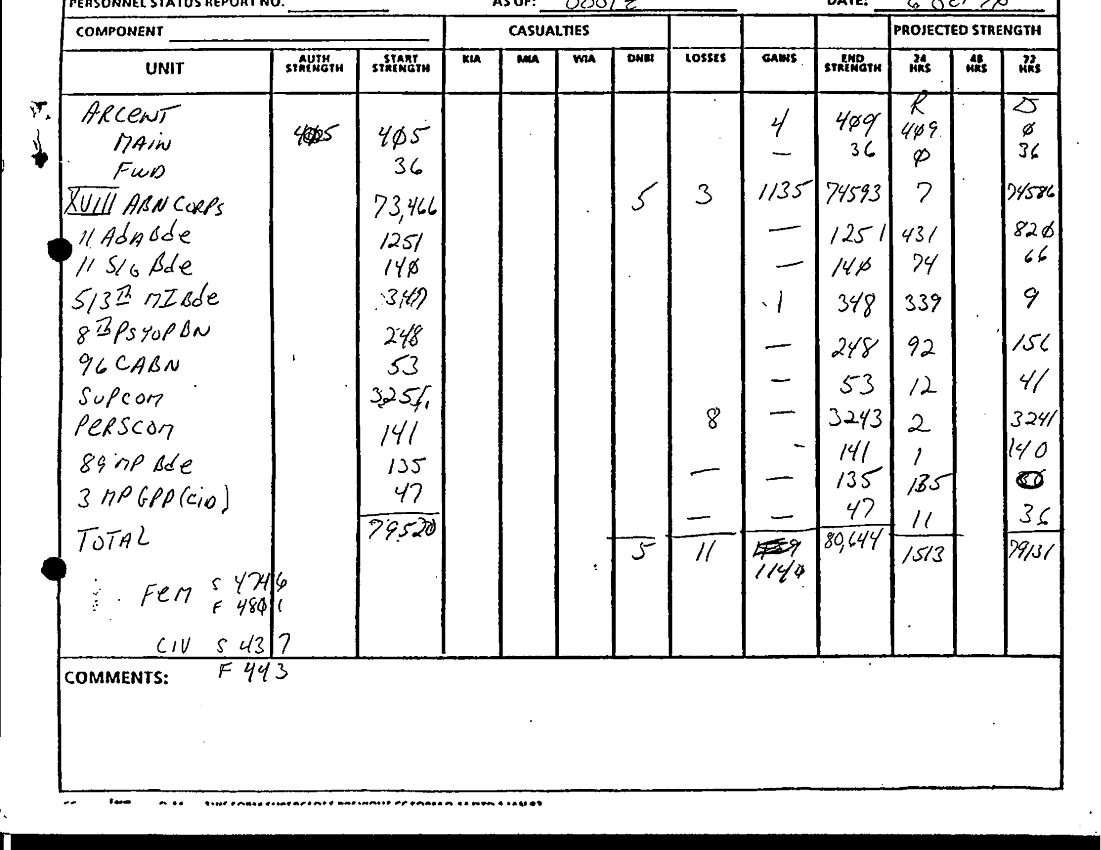 PERSONNEL STATUS REPORT NO. AS OF: 0001Z DATE:
COMPONENT CASUALTIES PROJECTED STRENGTH
UNIT AUTH STRENGTH START STRENGTH KIA MIA WIA DNBI LOSSES GAINS END STRENGTH 24 HRS 48 HRS 72 HRS
ARCENT R D
MAIN 405 405 4 409 409 0
FWD 36 — 36 0 36
XVIII ABN CORPS 73,466 5 3 1135 74593 7 74586
11 ADA Bde 1251 — 1251 431 820
11 SIG Bde 140 — 140 74 66
513th MI Bde 347 1 348 339 9
8th PSYOP BN 248 — 248 92 156
96 CABN 53 — 53 12 41
SUPCOM 3251 8 — 3243 2 3241
PERSCOM 141 - 141 1 140
89 MP Bde 135 — — 135 135
3 MP GPP (CID) 47 — — 47 11 36
TOTAL 79520 5 11 1140 80,644 1513 79131
FEM S 4746
F 4801
CIV S 437
F 443
COMMENTS: